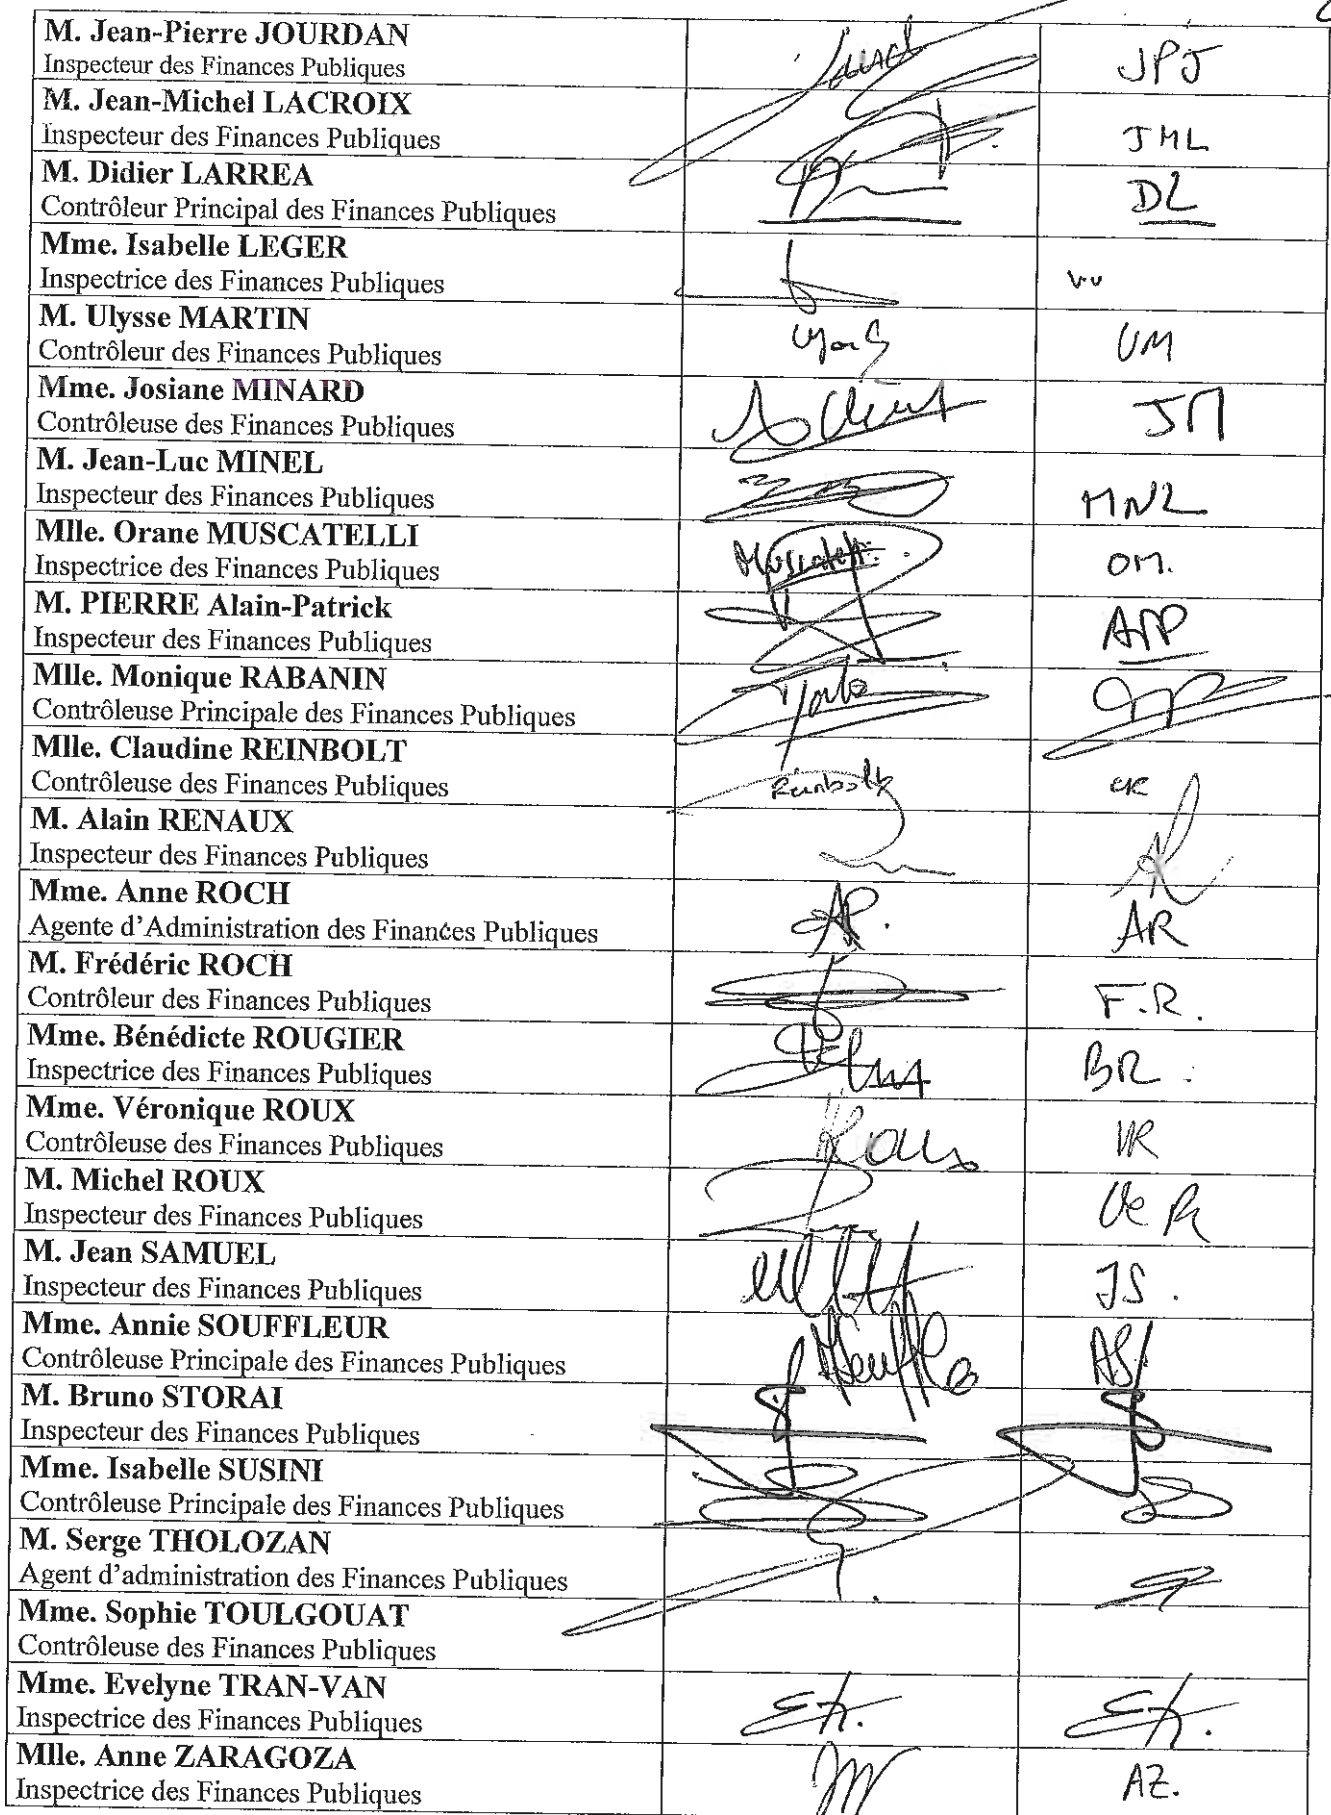 M. Jean-Pierre JOURDAN
Inspecteur des Finances Publiques
JPJ
M. Jean-Michel LACROIX
Inspecteur des Finances Publiques
JML
M. Didier LARREA
Contrôleur Principal des Finances Publiques
DL
Mme. Isabelle LEGER
Inspectrice des Finances Publiques
M. Ulysse MARTIN
Contrôleur des Finances Publiques
UM
Mme. Josiane MINARD
Contrôleuse des Finances Publiques
JM
M. Jean-Luc MINEL
Inspecteur des Finances Publiques
MNL
Mlle. Orane MUSCATELLI
Inspectrice des Finances Publiques
OM.
M. PIERRE Alain-Patrick
Inspecteur des Finances Publiques
APP
Mlle. Monique RABANIN
Contrôleuse Principale des Finances Publiques
Mlle. Claudine REINBOLT
Contrôleuse des Finances Publiques
Reinbolt CR
M. Alain RENAUX
Inspecteur des Finances Publiques
AR
Mme. Anne ROCH
Agente d'Administration des Finances Publiques
AR. AR
M. Frédéric ROCH
Contrôleur des Finances Publiques
F.R.
Mme. Bénédicte ROUGIER
Inspectrice des Finances Publiques
BR.
Mme. Véronique ROUX
Contrôleuse des Finances Publiques
Roux VR
M. Michel ROUX
Inspecteur des Finances Publiques
M. Jean SAMUEL
Inspecteur des Finances Publiques
JS.
Mme. Annie SOUFFLEUR
Contrôleuse Principale des Finances Publiques
AS
M. Bruno STORAI
Inspecteur des Finances Publiques
Mme. Isabelle SUSINI
Contrôleuse Principale des Finances Publiques
M. Serge THOLOZAN
Agent d'administration des Finances Publiques
Mme. Sophie TOULGOUAT
Contrôleuse des Finances Publiques
Mme. Evelyne TRAN-VAN
Inspectrice des Finances Publiques
Mlle. Anne ZARAGOZA
Inspectrice des Finances Publiques
AZ.